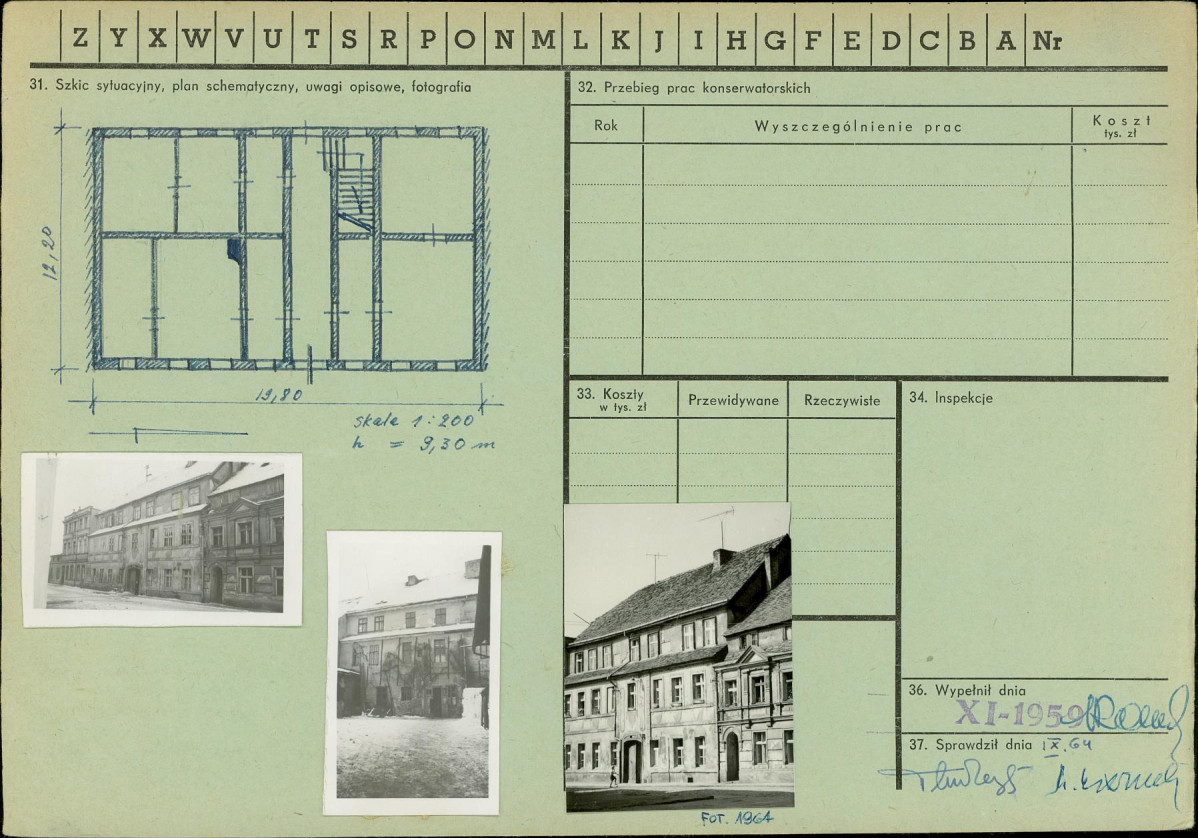 Z Y X W V U T S R P O N M L K J I H G F E D C B A Nr
31. Szkic sytuacyjny, plan schematyczny, uwagi opisowe, fotografia
12,20
19,80
skala 1:200
h = 9,30 m
32. Przebieg prac konserwatorskich
Rok
Wyszczególnienie prac
Koszt
tys. zł
33. Koszty
w tys. zł
Przewidywane
Rzeczywiste
34. Inspekcje
36. Wypełnił dnia
XI-1959
37. Sprawdził dnia IX.64
FOT. 1964